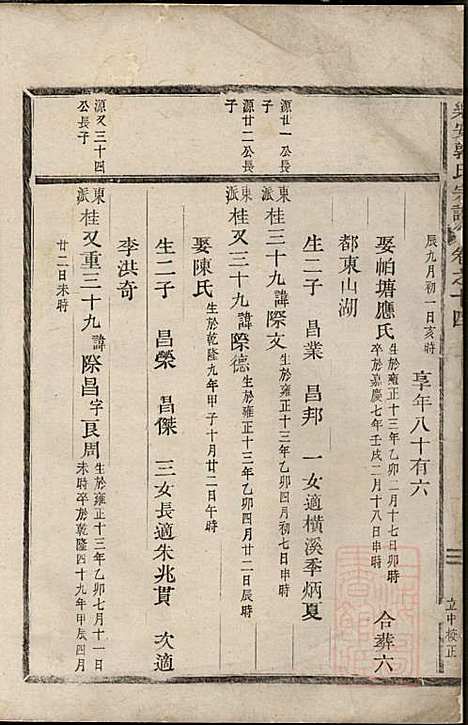 樂安郭氏宗譜 卷之十四
立中校正
辰九月初一日亥時 享年八十有六
娶帕塘應氏 生於雍正十三年乙卯二月十七日卯時 卒於嘉慶七年壬戌二月十八日申時 合葬六
都東山湖
源廿一公長子
東派 桂三十九諱際文 生於雍正十三年乙卯四月初七日申時
生二子 昌業 昌邦 一女適橫溪季炳夏
源廿二公長子
東派 桂又三十九諱際德 生於雍正十三年乙卯四月廿二日辰時
娶陳氏 生於乾隆九年甲子十月廿二日午時
生二子 昌榮 昌傑 三女長適朱兆貫 次適
李洪奇
源又三十四公長子
東派 桂又重三十九諱際昌字艮周 生於雍正十三年乙卯七月十一日未時卒於乾隆四十九年甲辰四月
廿二日未時